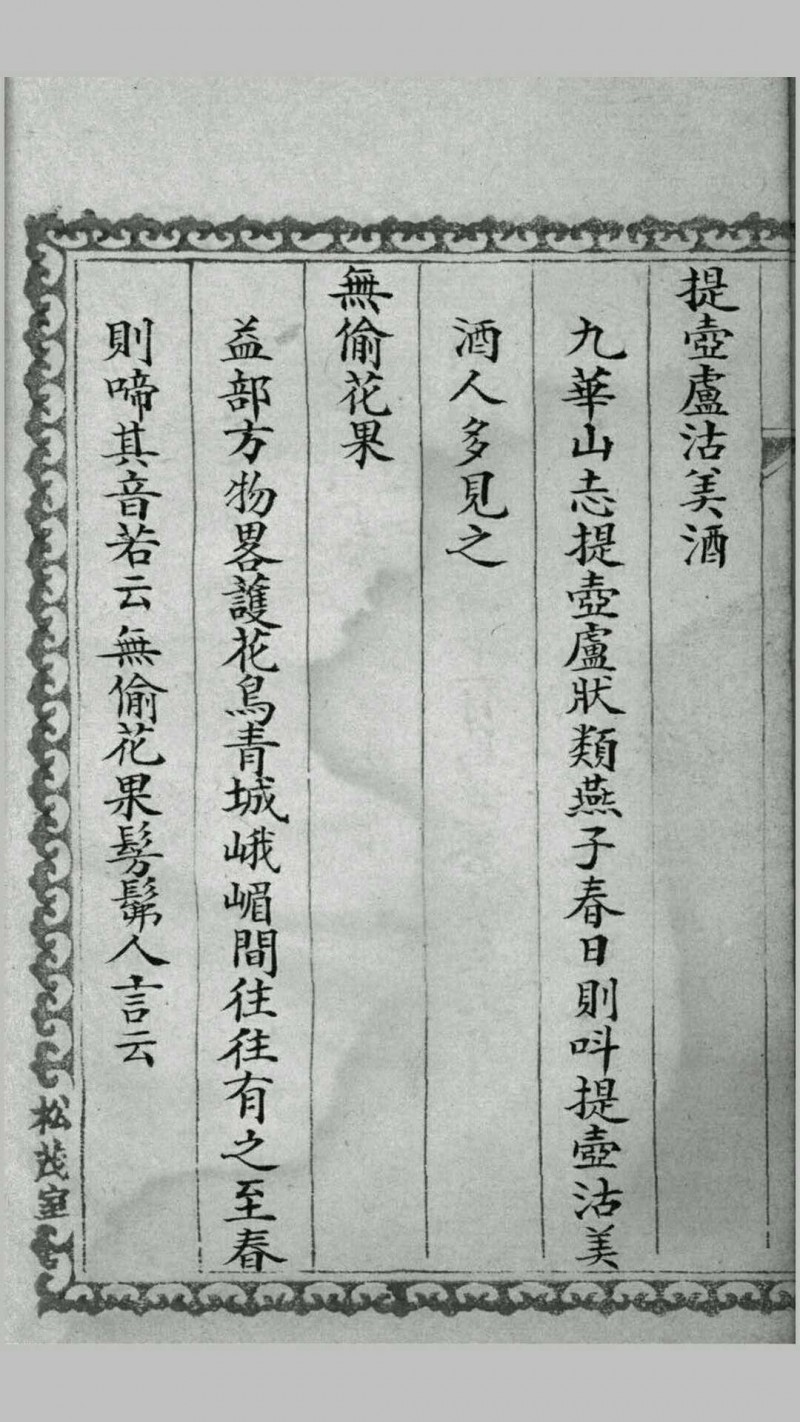 提壺盧沽美酒
九華山志提壺盧狀類燕子春日則呌提壺沽美
酒人多見之
無偷花果
益部方物畧護花鳥青城峨嵋間往往有之至春
則啼其音若云無偷花果髣髴人言云
松茂室